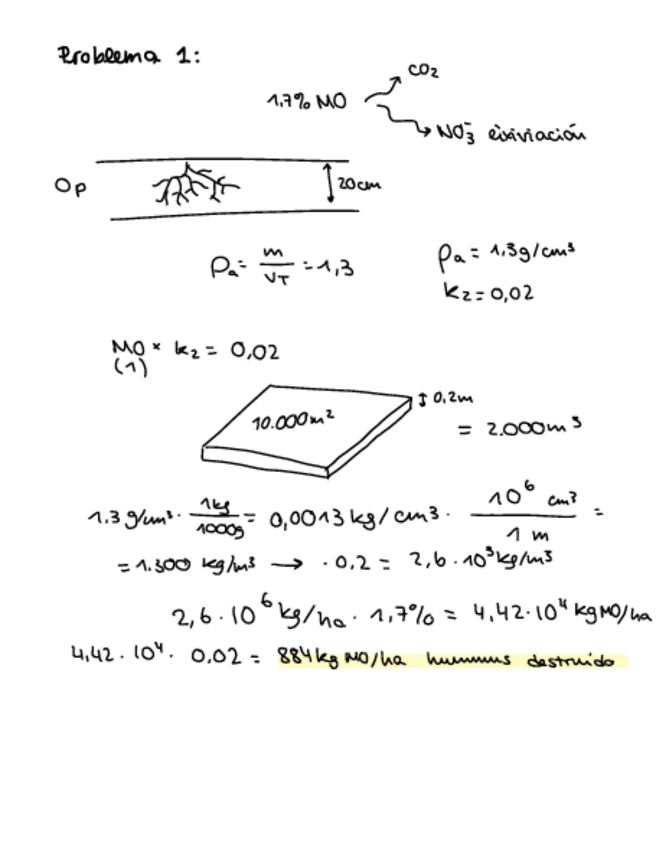 Problema 1:
CO₂
1,7% MO
NO₃⁻ lixiviación
Op
20cm
ρa = m/VT = 1,3
ρa = 1,3g/cm³
k₂ = 0,02
MO × k₂ = 0,02
(1)
10.000m²
0,2m
= 2.000m³
1.3 g/cm³ · 1kg/1000g = 0,0013 kg/cm3 · 10⁶ cm³/1 m =
= 1.300 kg/m³ → · 0,2 = 2,6 · 10³ kg/m³
2,6 · 10⁶ kg/ha · 1,7% = 4,42·10⁴ kg MO/ha
4,42 · 10⁴ · 0,02 = 884 kg MO/ha hummus destruido